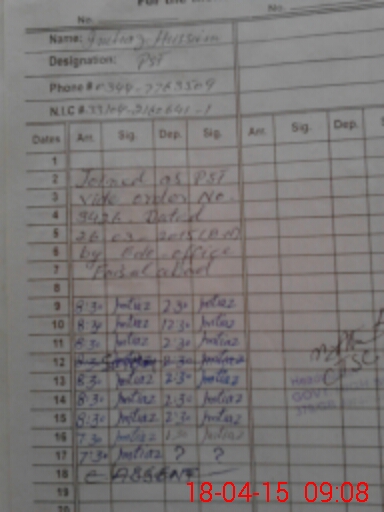 For the
No. No.
Name: Imtiaz Hussain
Designation: PST
Phone #
N.I.C #
Dates Arr. Sig. Dep. Sig. Arr. Sig. Dep.
1
2 Joined as PST
3 vide order No.
4 3426 Dated
5 26 03 2015
6 by Edo office
7 Faisalabad
8
9 8:30 Imtiaz 2:30 Imtiaz
10 8:30 Imtiaz 12:30 Imtiaz
11 8:30 Imtiaz 2:30 Imtiaz
12 2:30 Imtiaz
13 8:30 Imtiaz 2:30 Imtiaz
14 8:30 Imtiaz 2:30 Imtiaz
15 8:30 Imtiaz 2:30 Imtiaz
16 7:30 Imtiaz Imtiaz
17 7:30 Imtiaz ? ?
18 ABSENT
19
20
GOVT
18-04-15 09:08